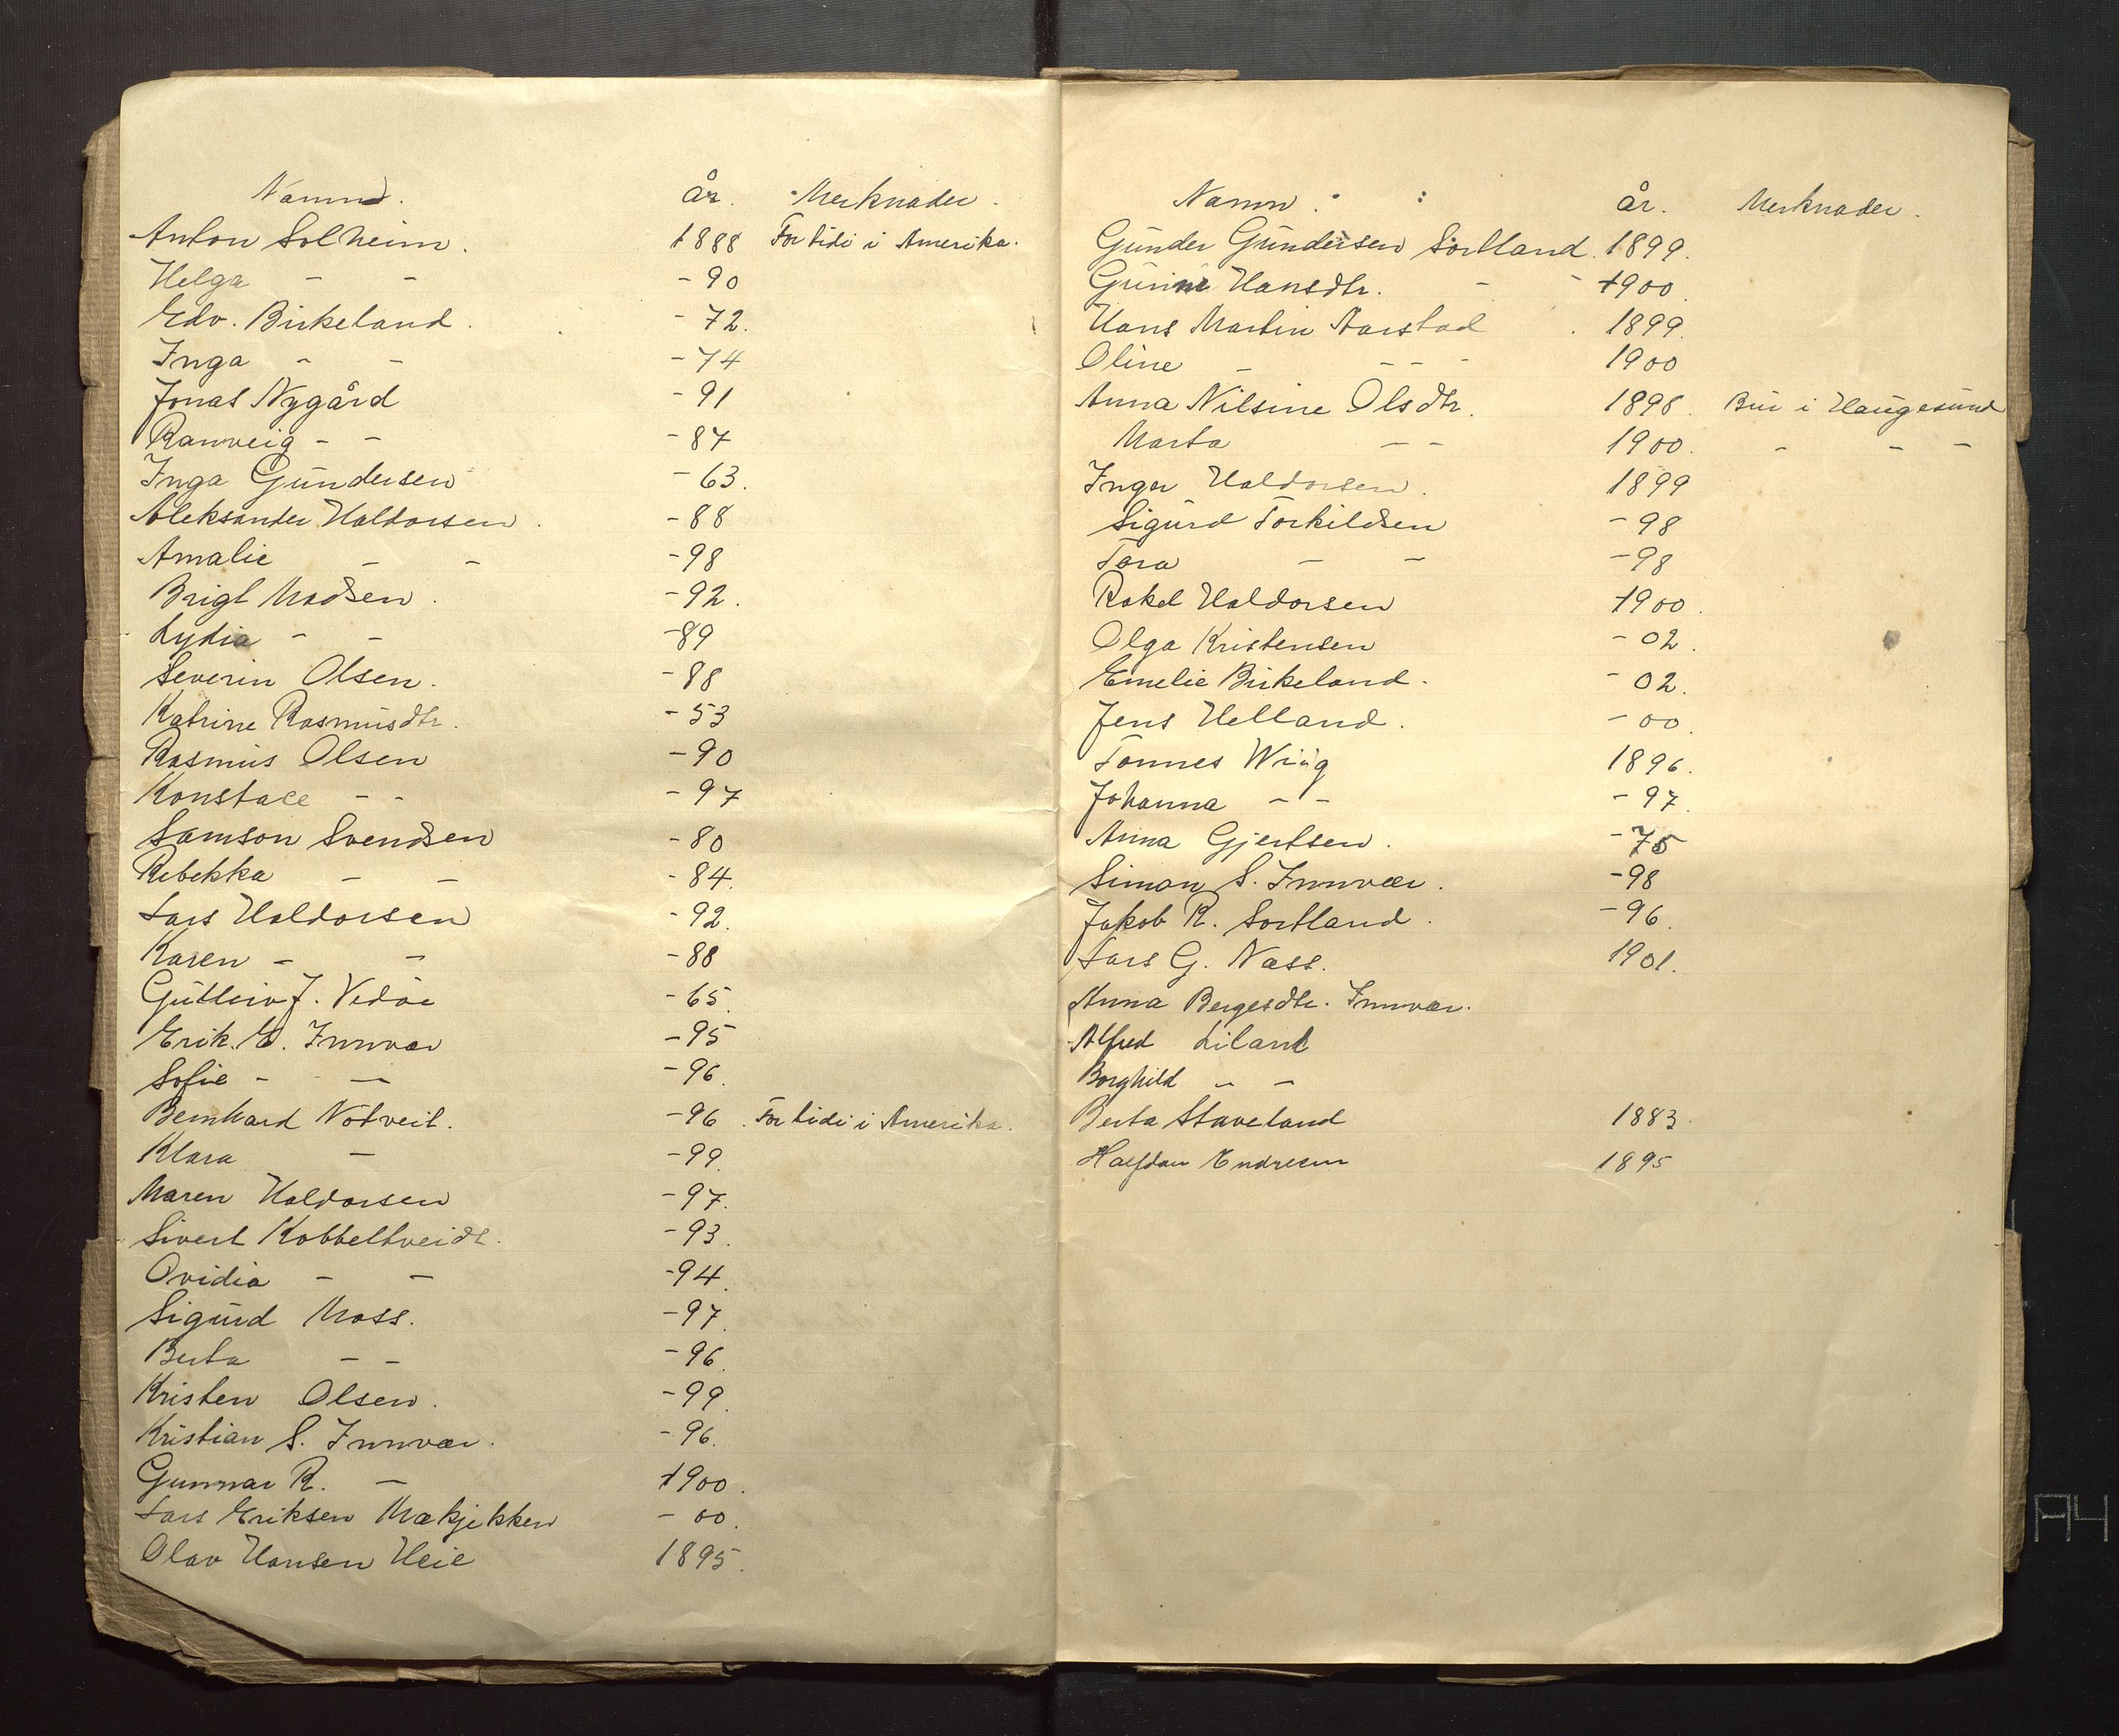 Namn. år. Merknader.
Anton Solheim. 1888 For tidi i Amerika.
Helga - - - 90
Edv. Birkeland. - 72.
Inga - - - 74
Jonas Nygård - 91
Ranveig - - - 87
Inga Gundersen - 63.
Aleksander Haldorsen. - 88
Amalie - - - 98
Brigt Madsen. - 92.
Lydia - - - 89
Severin Olsen. - 88
Katrine Rasmusdtr. - 53
Rasmus Olsen - 90
Konstace - - - 97
Samson Svendsen - 80
Rebekka - - - 84.
Lars Haldorsen - 92.
Karen - - - 88
Gutleiv J. Vedøe - 65.
Erik. E. Innvær - 95
Sofie - - - 96.
Bernhard Nötveit. - 96. For tidi i Amerika.
Klara - - 99.
Maren Haldorsen - 97.
Sivert Kobbeltveidt. - 93.
Ovidia - - - 94.
Sigurd Moss. - 97.
Berta - - - 96.
Kristen Olsen. - 99.
Kristian S. Innvær. - 96.
Gunnar R. - 1900.
Lars Eriksen Mækjekken - 00.
Olav Hansen Heie 1895.
Namn. : år. Merknader.
Gunder Gundersen Sortland. 1899.
Hansdtr. - - 1900.
Hans Martin Aarstad. 1899.
Oline - - - - 1900
Anna Nilsine Olsdtr. 1898. Bur i Haugesund
Marta - - 1900. - - -
Inger Haldorsen. 1899
Sigurd Torkildsen - 98
Tora - - - 98
Rakel Haldorsen 1900.
Olga Kristensen - 02.
Emelie Birkeland. - 02.
Jens Helland. - 00.
Tönnes Wiig 1896.
Johanna - - - 97.
Anna Gjertsen. - 75
Simon S. Innvær. - 98
Jakob R. Sortland. - 96.
Lars G. Næss. 1901.
Anna Bergesdtr. Innvær.
Alfred Liland
Borghild - -
Berta Staveland 1883.
Halfdan Endresen 1895
A4